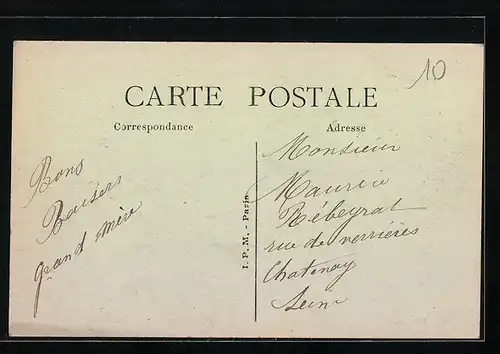 10
CARTE POSTALE
Correspondance
Adresse
Bons
Baisers
grand mère
I. P. M. - Paris
Monsieur
Maurice
Rébeyrat
rue de verrières
Chatenay
Seine